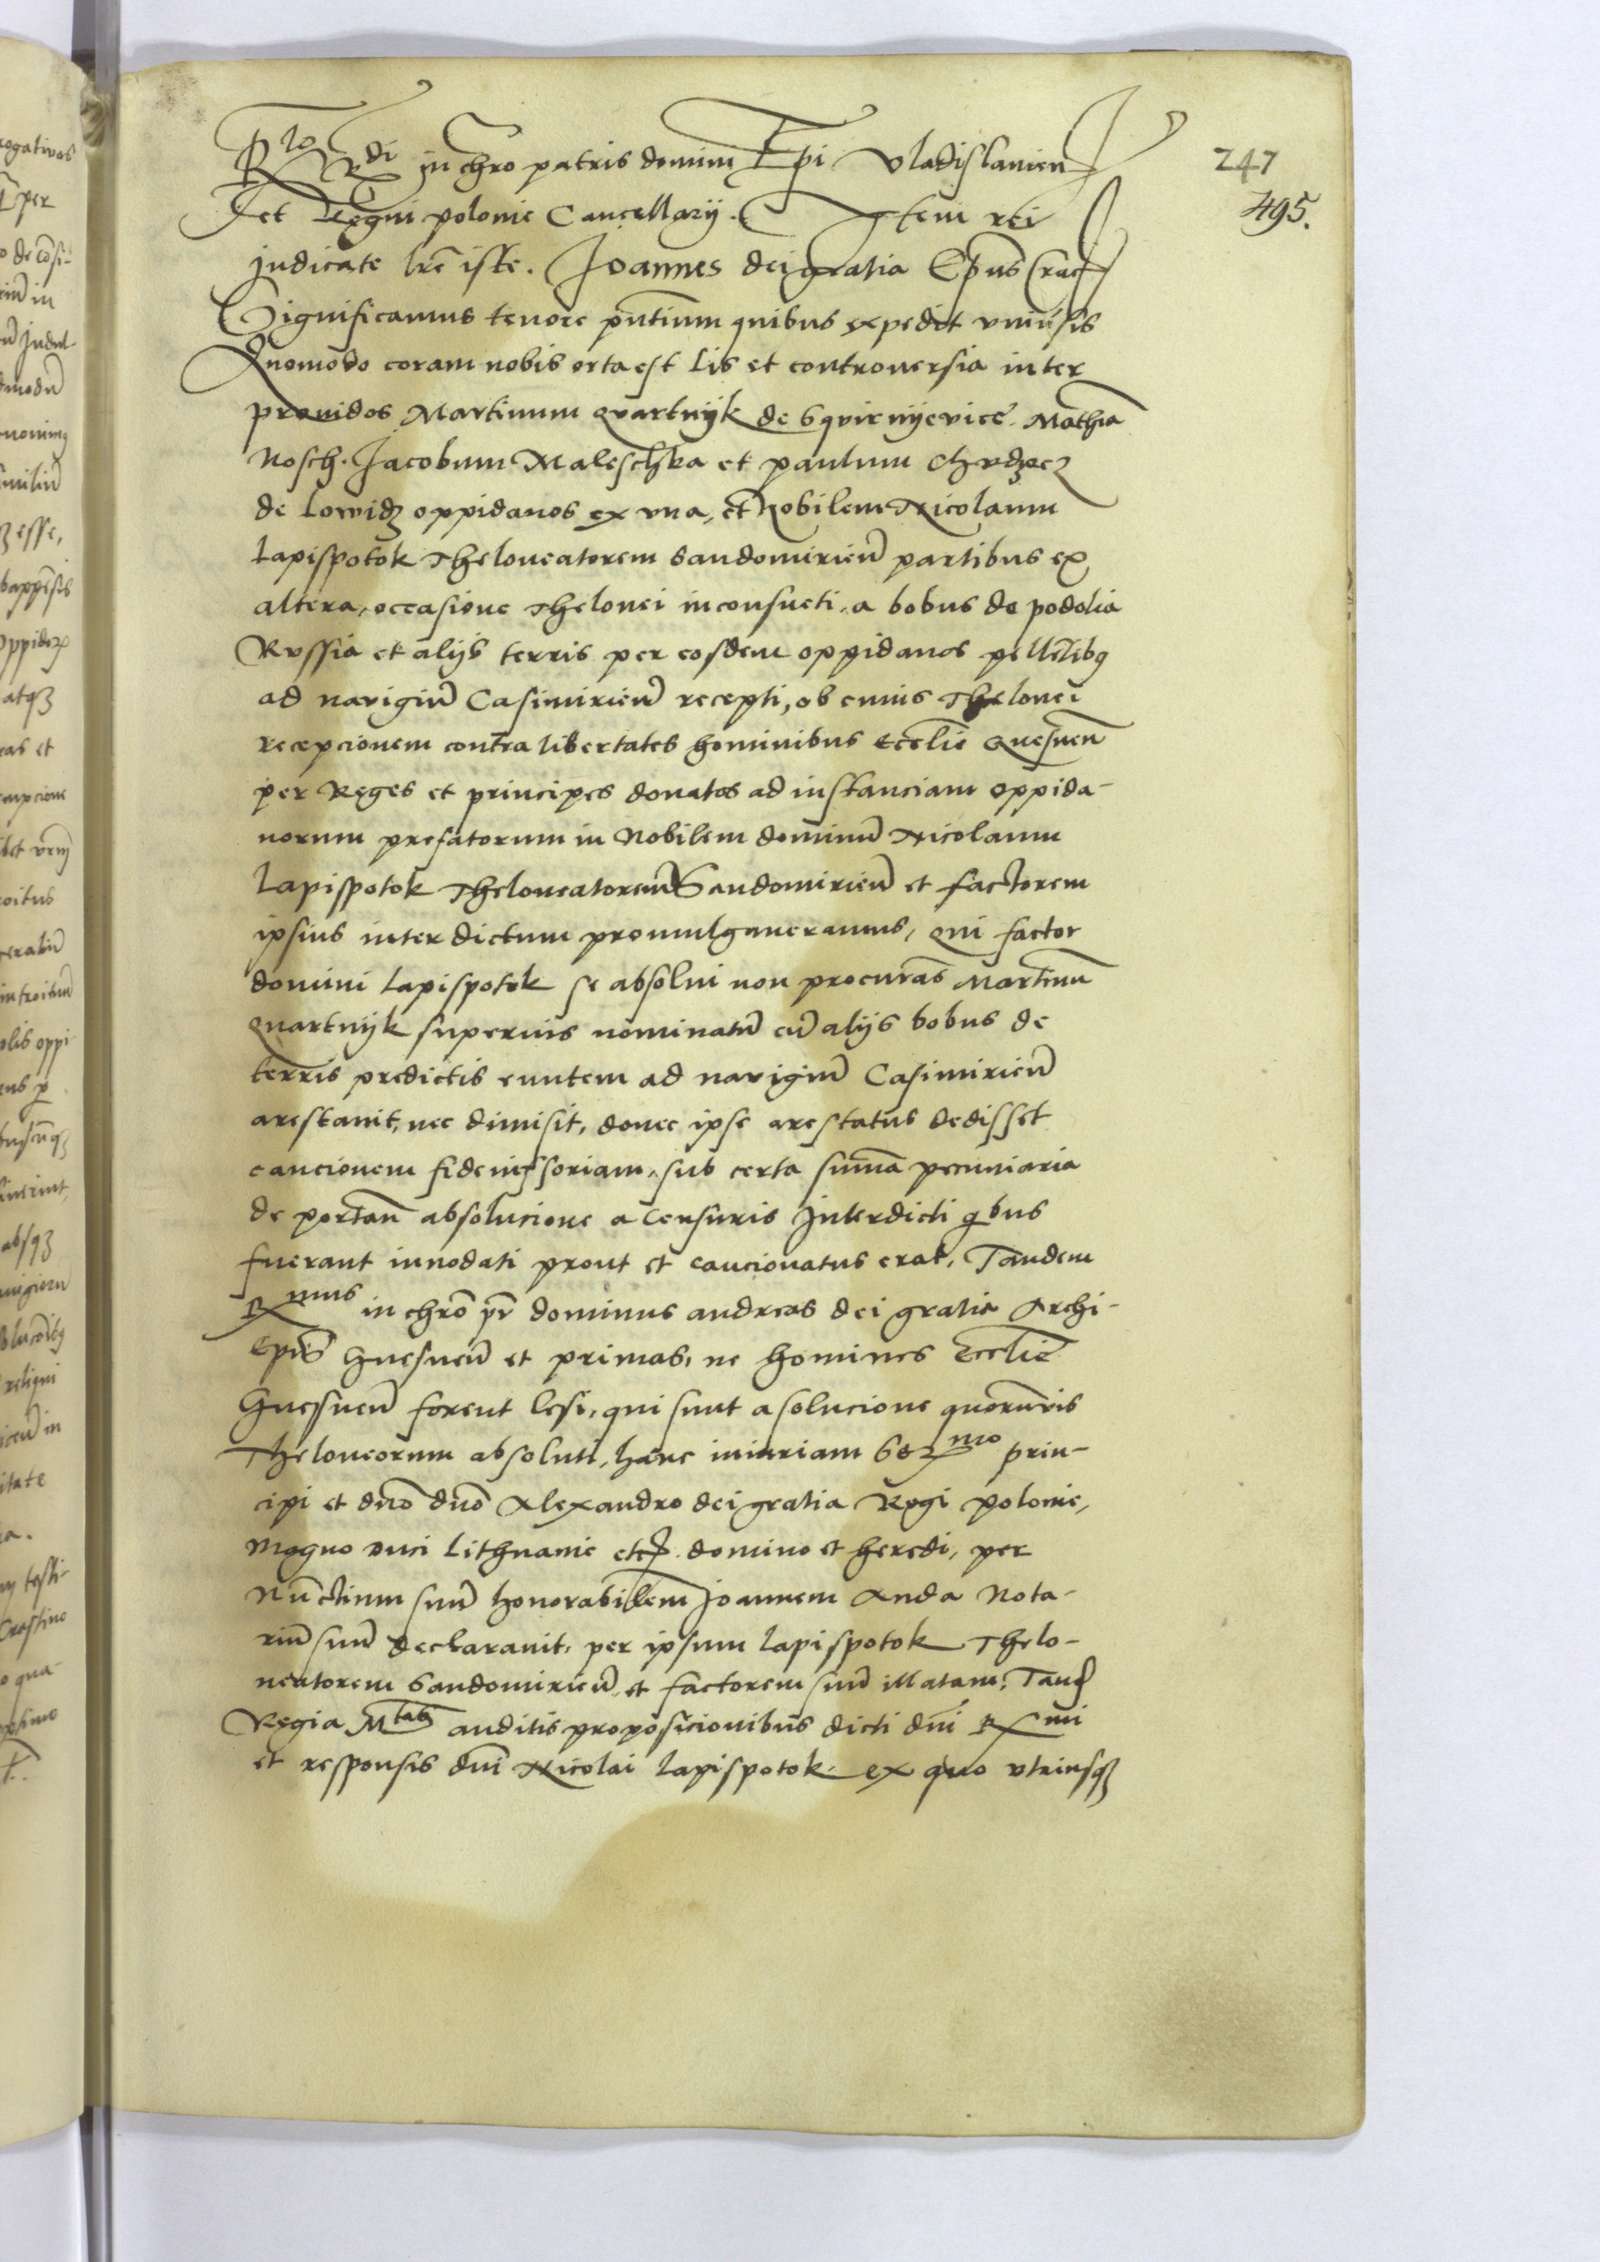 R lo R di in chro patris domini Epi Vladislavien
et Regni polonie Cancellarij. Item rei
judicate lre iste. Joannes dei gratia Epus Crac
Significamus tenore pntium quibus expedit vniusis
Quomodo coram nobis orta est lis et controuersia inter
prouidos Martinum Quartnijk de Sqvirnijevice. Mathia
Nosch. Jacobum Maleschka et paulum
de Lowidz oppidanos ex vna, et Nobilem Nicolaum
Lapispotok Theloneatorem Sandomirien partibus ex
altera, occasione Thelonei inconsueti, a bobus de podolia
Russia et alijs terris per eosdem oppidanos pellentibq
ad navigiu Casimirien recepti, ob cuius Thelonei
recepcionem contra libertates hominibus Ecclie Gnesnen
per Reges et principes donatas ad instanciam oppida-
norum prefatorum in Nobilem dominu Nicolaum
Lapispotok Theloneatorem Sandomirien et factorem
ipsius interdictum promulgaueramus, Qui factor
domini Lapispotok se absolui non procuras Martinu
Quartnijk superius nominatu cu alijs bobus de
terris predictis euntem ad navigiu Casimirien
arestauit, nec dimisit, donec ipse arestatus dedisset
caucionem fideiussoriam, sub certa suma pecuniaria
de portan absolucione a Censuris Interdicti qbus
fuerant innodati prout et caucionatus erat, Tandem
R mus in chro pr dominus andreas dei gratia Archi-
Epus Gnesnen et primas, ne homines Ecclie
Gnesnen forent lesi, qui sunt a solucione quorumvis
Theloneorum absoluti, hanc iniuriam Ser mo prin-
cipi et dno dno Alexandro dei gratia Regi polonie,
Magno duci Lithuanie etc. domino et heredi, per
Nunctium suu honorabilem Joannem Anda Nota-
riu suu declarauit, per ipsum Lapispotok Thelo-
neatorem Sandomirien, et factorem suu illatam, Tand
Regia M tas auditis proposicionibus dicti dni R mi
et responsis dni Nicolai Lapispotok. ex quo vtriusq
247
495.